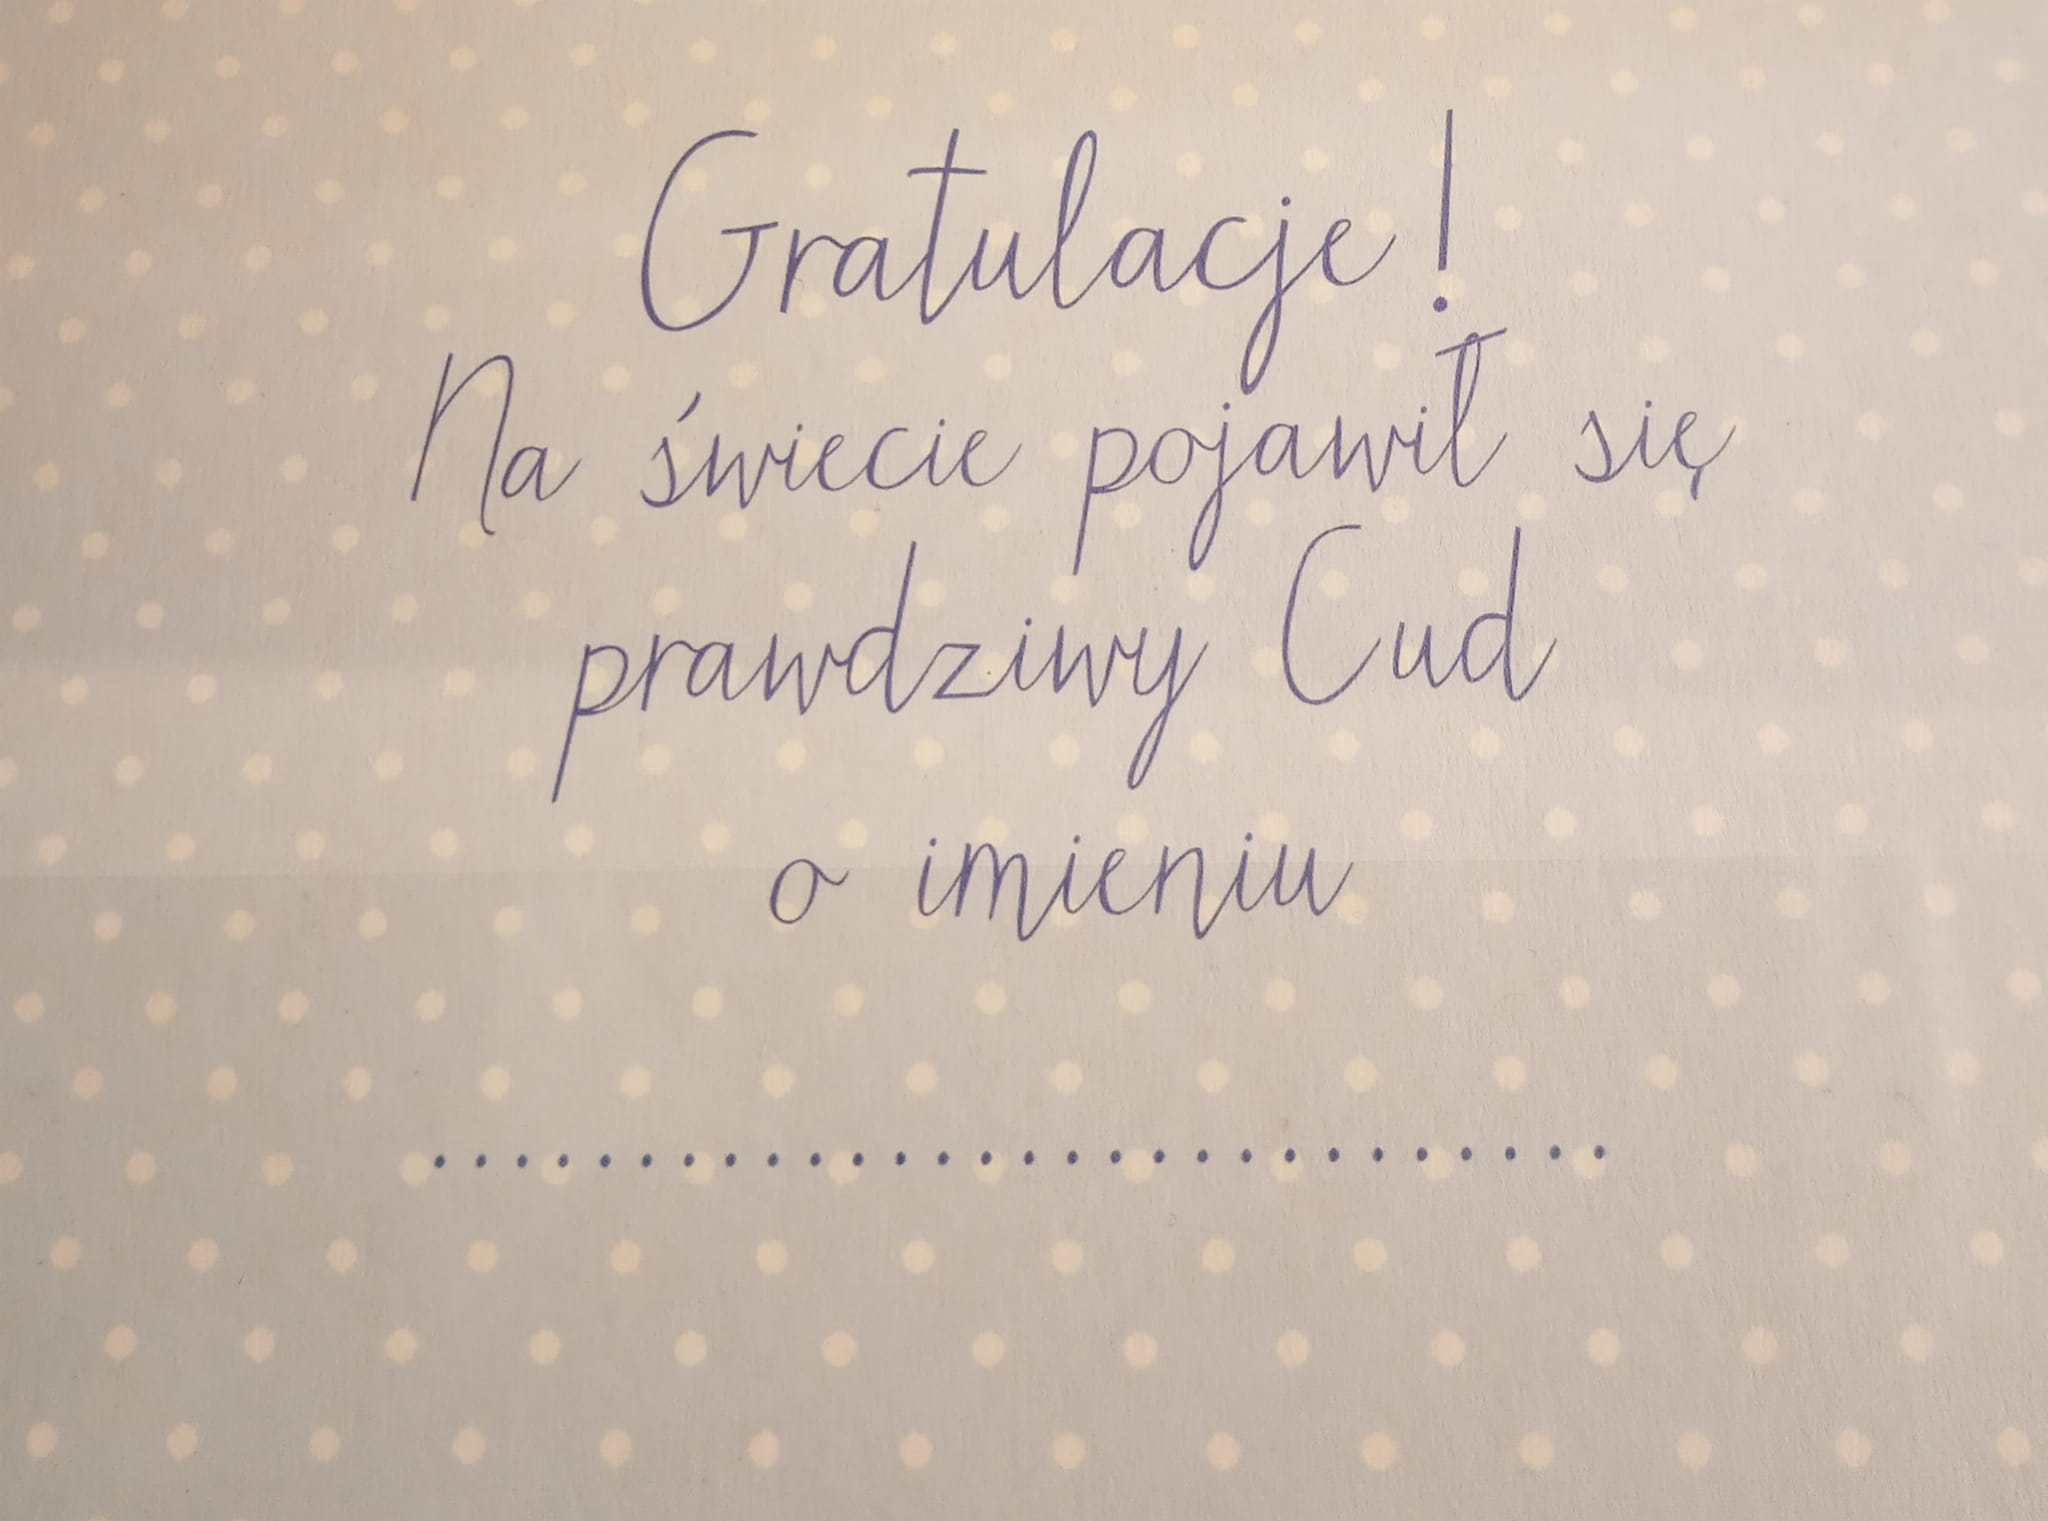 Gratulacje!
Na świecie pojawił się
prawdziwy Cud
o imieniu
............................